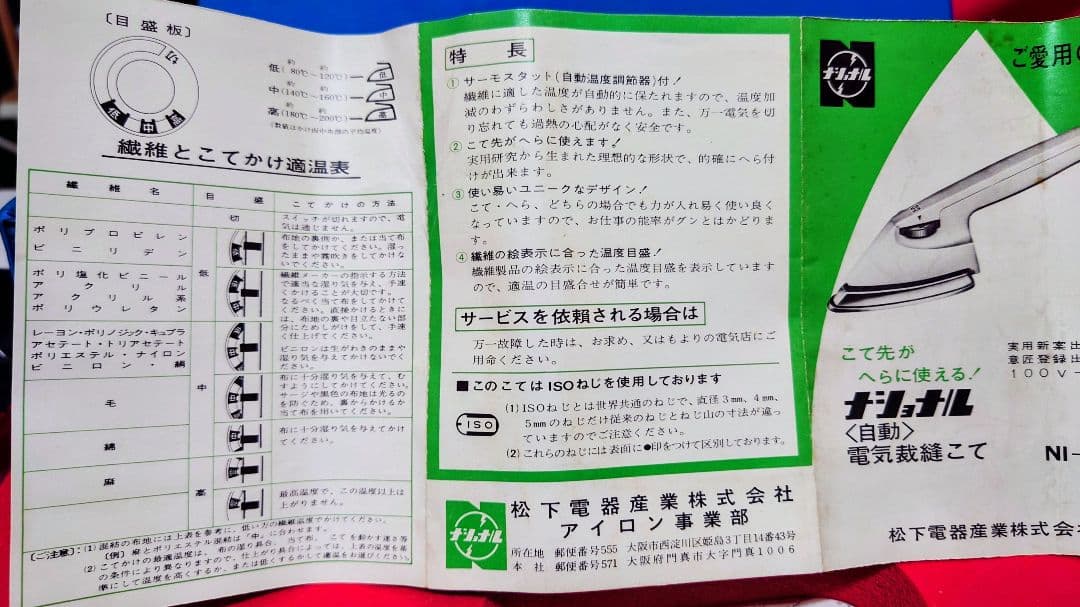 〔目盛板〕
切
低 中 高
約 約
低(80℃〜120℃)
低
約 約
中(140℃〜160℃)
中
約 約
高(180℃〜200℃)
高
繊維とこてかけ適温表
繊維名
目盛
こてかけの方法
切
スイッチが切れますので、電
気は通じません。
ポリプロピレン
ビニリデン
低
布地の裏側か、または当て布
をしてかけてください。湿っ
たままや霧吹きをしてかけな
いでください。
ポリ塩化ビニール
アクリル
アクリル系
ポリウレタン
繊維メーカーの指示する方法
で適当な湿り気を与え、手速
くかけることが大切です。
なるべく当て布をしてかけて
ください。直接かけるときに
は、布地の裏や目立たない部
分にためしがけをして、手速
く仕上げてください。
レーヨン・ポリノジック・キュプラ
アセテート・トリアセテート
ポリエステル・ナイロン
ビニロン・絹
ビニロンは生がわきのままや
湿り気を与えてかけないでく
ださい。
中
毛
布に十分湿り気を与えて、む
すようにしてかけてください。
サージや黒色の布地は光るの
を防ぐため、裏からかけるか
当て布を用いてください。
綿
布に十分湿り気を与えてかけ
てください。
麻
高
最高温度で、この温度以上は
上がりません。
(ご注意):(1)混紡の布地には上表を参考に、低い方の繊維温度でかけてください。
(例) 麻とポリエステル混紡は「中」に合わせます。
(2)こてかけの最適温度は、布の湿り具合、当て布、こてを動かす速さ等
の条件により異なりますので、仕上がり具合によっては、上表の温度を基
準にして温度を高くするか、または低くするかして適温をお選びください。
特長
① サーモスタット(自動温度調節器)付!
繊維に適した温度が自動的に保たれますので、温度加
減のわずらわしさがありません。また、万一電気を切
り忘れても過熱の心配がなく安全です。
② こて先がへらに使えます!
実用研究から生まれた理想的な形状で、的確にへら付
けが出来ます。
③ 使い易いユニークなデザイン!
こて・へら、どちらの場合でも力が入れ易く使い良く
なっていますので、お仕事の能率がグンとはかどりま
す。
④ 繊維の絵表示に合った温度目盛!
繊維製品の絵表示に合った温度目盛を表示しています
ので、適温の目盛合せが簡単です。
サービスを依頼される場合は
万一故障した時は、お求め、又はもよりの電気店にご
用命ください。
■このこてはISOねじを使用しております
ISO
(1) ISOねじとは世界共通のねじで、直径3mm、4mm、
5mmのねじだけ従来のねじとねじ山の寸法が違っ
ていますのでご注意ください。
(2) これらのねじには表面に●印をつけて区別しております。
ナショナル
松下電器産業株式会社
アイロン事業部
所在地 郵便番号555 大阪市西淀川区姫島3丁目14番43号
本社 郵便番号571 大阪府門真市大字門真1006
ナショナル
ご愛用の
こて先が
へらに使える!
ナショナル
〈自動〉
電気裁縫こて
実用新案出
意匠登録出
100V-
NI-
松下電器産業株式会